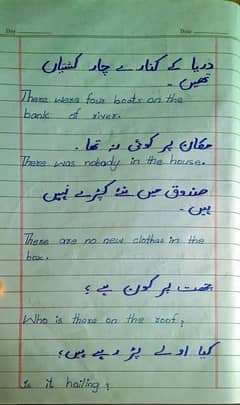 دریا کے کنارے چار کشتیاں
تھیں۔
There were four boats on the
bank of river.
مکان پر کوئی نہ تھا۔
There was nobody in the house.
صندوق میں نئے کپڑے نہیں
ہیں۔
There are no new clothes in the
box.
چھت پر کون ہے؟
Who is there on the roof?
کیا اولے پڑ رہے ہیں؟
Is it hailing?